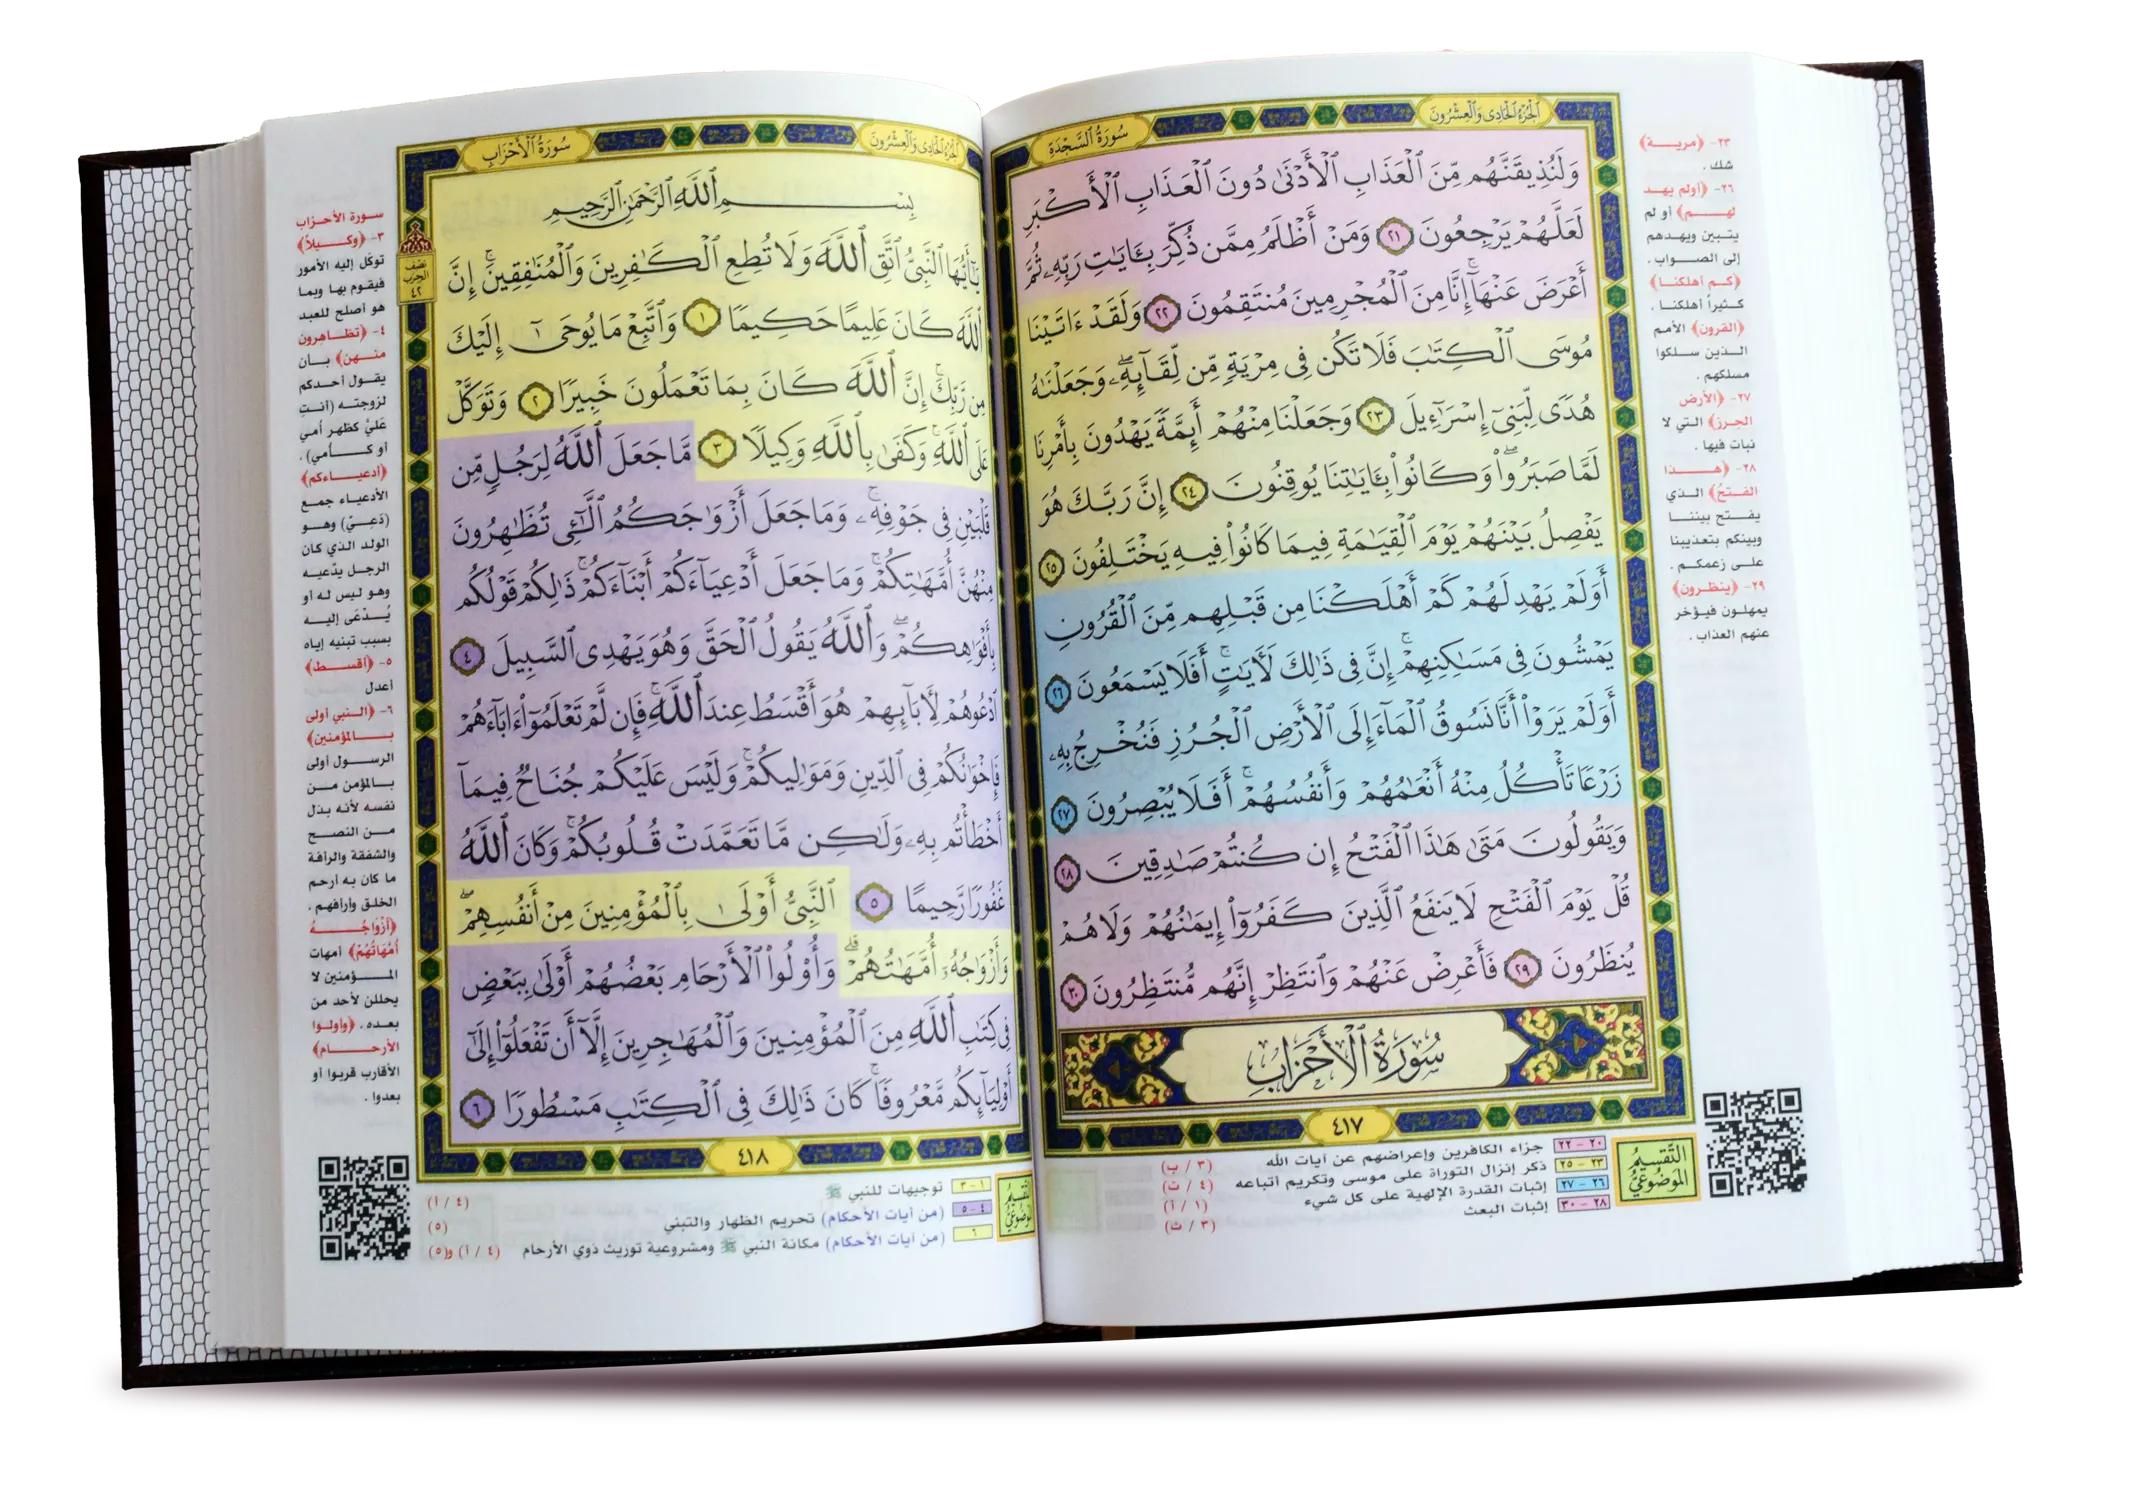 سُورَةُ السَّجْدَةِ
الجُزْءُ الحَادِي وَالعِشْرُونَ
وَلَنُذِيقَنَّهُم مِّنَ ٱلْعَذَابِ ٱلْأَدْنَىٰ دُونَ ٱلْعَذَابِ ٱلْأَكْبَرِ
لَعَلَّهُمْ يَرْجِعُونَ ٢١ وَمَنْ أَظْلَمُ مِمَّن ذُكِّرَ بِـَٔايَـٰتِ رَبِّهِۦ ثُمَّ
أَعْرَضَ عَنْهَآ ۚ إِنَّا مِنَ ٱلْمُجْرِمِينَ مُنتَقِمُونَ ٢٢ وَلَقَدْ ءَاتَيْنَا
مُوسَى ٱلْكِتَـٰبَ فَلَا تَكُن فِى مِرْيَةٍ مِّن لِّقَآئِهِۦ ۖ وَجَعَلْنَـٰهُ
هُدًى لِّبَنِىٓ إِسْرَٰٓءِيلَ ٢٣ وَجَعَلْنَا مِنْهُمْ أَئِمَّةً يَهْدُونَ بِأَمْرِنَا
لَمَّا صَبَرُوا۟ ۖ وَكَانُوا۟ بِـَٔايَـٰتِنَا يُوقِنُونَ ٢٤ إِنَّ رَبَّكَ هُوَ
يَفْصِلُ بَيْنَهُمْ يَوْمَ ٱلْقِيَـٰمَةِ فِيمَا كَانُوا۟ فِيهِ يَخْتَلِفُونَ ٢٥
أَوَلَمْ يَهْدِ لَهُمْ كَمْ أَهْلَكْنَا مِن قَبْلِهِم مِّنَ ٱلْقُرُونِ
يَمْشُونَ فِى مَسَـٰكِنِهِمْ ۚ إِنَّ فِى ذَٰلِكَ لَـَٔايَـٰتٍ ۖ أَفَلَا يَسْمَعُونَ ٢٦
أَوَلَمْ يَرَوْا۟ أَنَّا نَسُوقُ ٱلْمَآءَ إِلَى ٱلْأَرْضِ ٱلْجُرُزِ فَنُخْرِجُ بِهِۦ
زَرْعًا تَأْكُلُ مِنْهُ أَنْعَـٰمُهُمْ وَأَنفُسُهُمْ ۖ أَفَلَا يُبْصِرُونَ ٢٧
وَيَقُولُونَ مَتَىٰ هَـٰذَا ٱلْفَتْحُ إِن كُنتُمْ صَـٰدِقِينَ ٢٨
قُلْ يَوْمَ ٱلْفَتْحِ لَا يَنفَعُ ٱلَّذِينَ كَفَرُوٓا۟ إِيمَـٰنُهُمْ وَلَا هُمْ
يُنظَرُونَ ٢٩ فَأَعْرِضْ عَنْهُمْ وَٱنتَظِرْ إِنَّهُم مُّنتَظِرُونَ ٣٠
سُورَةُ الأَحْزَابِ
٤١٧
٢٣- ﴿مرية﴾
شك .
٢٦- ﴿أولم يهد
لهم﴾ أو لم
يتبين ويهدهم
إلى الصواب .
﴿كم أهلكنا﴾
كثيراً أهلكنا .
﴿القرون﴾ الأمم
الذين سلكوا
مسلكهم .
٢٧- ﴿الأرض
الجرز﴾ التي لا
نبات فيها .
٢٨- ﴿هذا
الفتح﴾ الذي
يفتح بيننا
وبينكم بتعذيبنا
على زعمكم .
٢٩- ﴿ينظرون﴾
يمهلون فيؤخر
عنهم العذاب .
التَّقْسِيمُ
المَوْضُوعِيُّ
٢٠ - ٢٢ جزاء الكافرين وإعراضهم عن آيات الله (٣ / ب)
٢٣ - ٢٥ ذكر إنزال التوراة على موسى وتكريم أتباعه (٤ / ت)
٢٦ - ٢٧ إثبات القدرة الإلهية على كل شيء (١ / أ)
٢٨ - ٣٠ إثبات البعث (٣ / ث)
الجُزْءُ الحَادِي وَالعِشْرُونَ
سُورَةُ الأَحْزَابِ
نصف
الحزب
٤٢
بِسْمِ ٱللَّهِ ٱلرَّحْمَـٰنِ ٱلرَّحِيمِ
يَـٰٓأَيُّهَا ٱلنَّبِىُّ ٱتَّقِ ٱللَّهَ وَلَا تُطِعِ ٱلْكَـٰفِرِينَ وَٱلْمُنَـٰفِقِينَ ۗ إِنَّ
ٱللَّهَ كَانَ عَلِيمًا حَكِيمًا ١ وَٱتَّبِعْ مَا يُوحَىٰٓ إِلَيْكَ
مِن رَّبِّكَ ۚ إِنَّ ٱللَّهَ كَانَ بِمَا تَعْمَلُونَ خَبِيرًا ٢ وَتَوَكَّلْ
عَلَى ٱللَّهِ ۚ وَكَفَىٰ بِٱللَّهِ وَكِيلًا ٣ مَّا جَعَلَ ٱللَّهُ لِرَجُلٍ مِّن
قَلْبَيْنِ فِى جَوْفِهِۦ ۚ وَمَا جَعَلَ أَزْوَٰجَكُمُ ٱلَّـٰٓـِٔى تُظَـٰهِرُونَ
مِنْهُنَّ أُمَّهَـٰتِكُمْ ۚ وَمَا جَعَلَ أَدْعِيَآءَكُمْ أَبْنَآءَكُمْ ۚ ذَٰلِكُمْ قَوْلُكُم
بِأَفْوَٰهِكُمْ ۖ وَٱللَّهُ يَقُولُ ٱلْحَقَّ وَهُوَ يَهْدِى ٱلسَّبِيلَ ٤
ٱدْعُوهُمْ لِـَٔابَآئِهِمْ هُوَ أَقْسَطُ عِندَ ٱللَّهِ ۚ فَإِن لَّمْ تَعْلَمُوٓا۟ ءَابَآءَهُمْ
فَإِخْوَٰنُكُمْ فِى ٱلدِّينِ وَمَوَٰلِيكُمْ ۚ وَلَيْسَ عَلَيْكُمْ جُنَاحٌ فِيمَآ
أَخْطَأْتُم بِهِۦ وَلَـٰكِن مَّا تَعَمَّدَتْ قُلُوبُكُمْ ۚ وَكَانَ ٱللَّهُ
غَفُورًا رَّحِيمًا ٥ ٱلنَّبِىُّ أَوْلَىٰ بِٱلْمُؤْمِنِينَ مِنْ أَنفُسِهِمْ ۖ
وَأَزْوَٰجُهُۥٓ أُمَّهَـٰتُهُمْ ۗ وَأُو۟لُوا۟ ٱلْأَرْحَامِ بَعْضُهُمْ أَوْلَىٰ بِبَعْضٍ
فِى كِتَـٰبِ ٱللَّهِ مِنَ ٱلْمُؤْمِنِينَ وَٱلْمُهَـٰجِرِينَ إِلَّآ أَن تَفْعَلُوٓا۟ إِلَىٰٓ
أَوْلِيَآئِكُم مَّعْرُوفًا ۚ كَانَ ذَٰلِكَ فِى ٱلْكِتَـٰبِ مَسْطُورًا ٦
٤١٨
سورة الأحزاب
٣- ﴿وكيلاً﴾
توكل إليه الأمور
فيقوم بها وبما
هو أصلح للعبد
٤- ﴿تظاهرون
منهن﴾ بأن
يقول أحدكم
لزوجته (أنتِ
عَليَّ كظهر أمي
أو كأمي) .
﴿أدعياءكم﴾
الأدعياء جمع
(دَعِيّ) وهو
الولد الذي كان
الرجل يدّعيه
وهو ليس له أو
يُدْعَى إليه
بسبب تبنيه إياه
٥- ﴿أقسط﴾
أعدل
٦- ﴿النبي أولى
بالمؤمنين﴾
الرسول أولى
بالمؤمن من
نفسه لأنه بذل
من النصح
والشفقة والرأفة
ما كان به أرحم
الخلق وأرأفهم .
﴿أَزْوَاجُهُ
أُمَّهَاتُهُمْ﴾ أمهات
المؤمنين لا
يحللن لأحد من
بعده . ﴿وأولوا
الأرحام﴾
الأقارب قربوا أو
بعدوا .
١ - ٣ توجيهات للنبي ﷺ (٤ / أ)
٤ - ٥ (من آيات الأحكام) تحريم الظهار والتبني (٥)
٦ (من آيات الأحكام) مكانة النبي ﷺ ومشروعية توريث ذوي الأرحام (٤ / أ) و(٥)